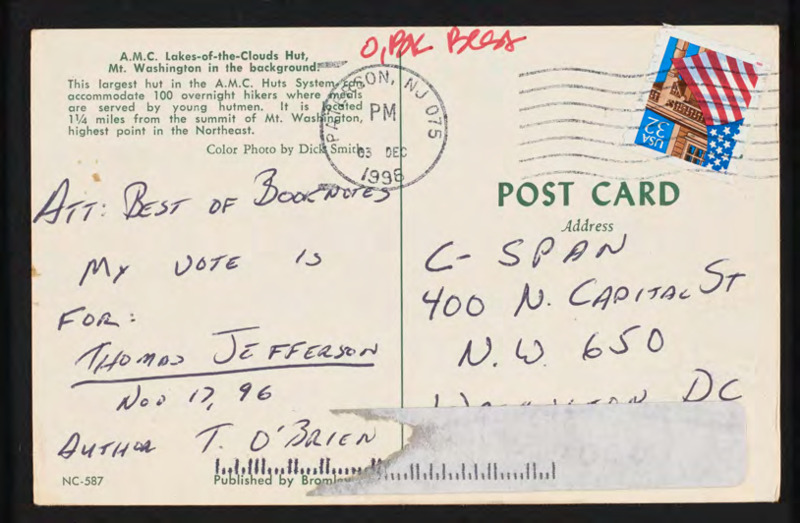 A.M.C. Lakes-of-the-Clouds Hut,
Mt. Washington in the background.
This largest hut in the A.M.C. Huts System can
accommodate 100 overnight hikers where meals
are served by young hutmen. It is located
1¼ miles from the summit of Mt. Washington,
highest point in the Northeast.
Color Photo by Dick Smith
PATERSON, NJ 075
PM
03 DEC
1996
USA 32
ATT: BEST OF BOOKNOTES
MY VOTE IS
FOR:
THOMAS JEFFERSON
NOV 17, 96
AUTHOR T. O'BRIEN
NC-587
Published by Bromley
POST CARD
Address
C-SPAN
400 N. CAPITAL ST
N.W. 650
WASHINGTON DC